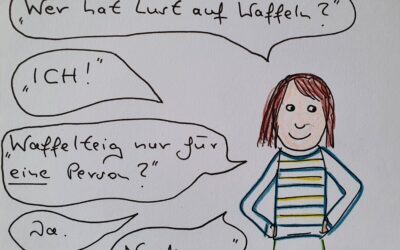 „Wer hat Lust auf Waffeln?"
„ICH!"
„Waffelteig nur für
eine Person?"
Ja.